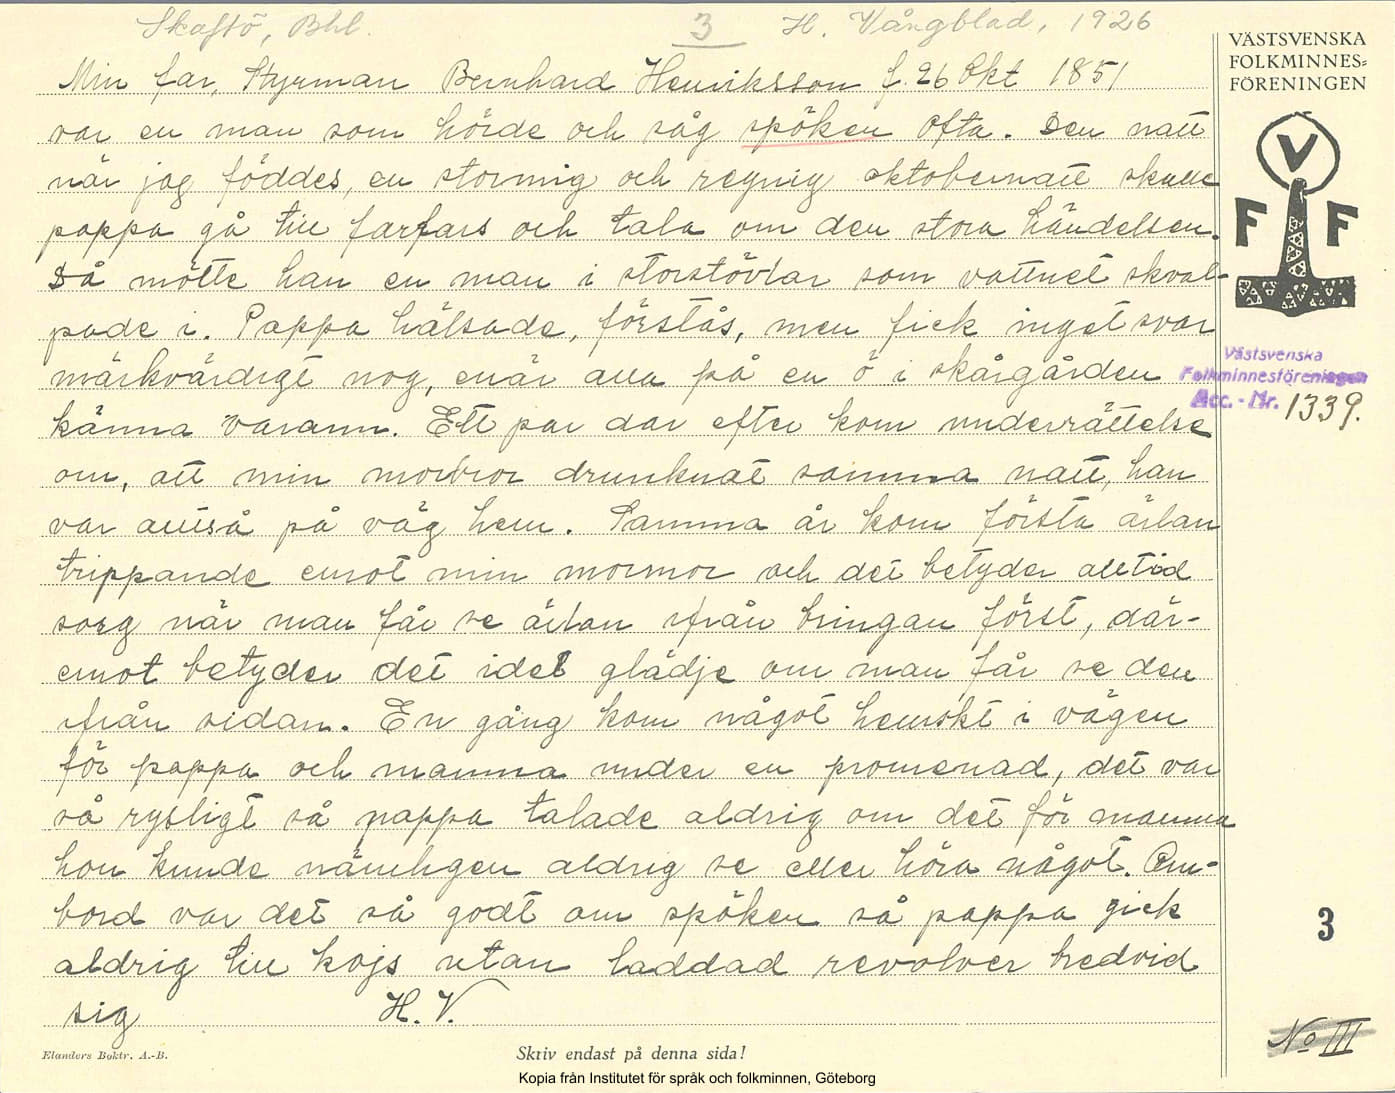 Skaftö, Bhl. 3 H. Vångblad, 1926
VÄSTSVENSKA
FOLKMINNES=
FÖRENINGEN
V
F F
Västsvenska
Folkminnesföreningen
Acc. - Nr. 1339.
Min far, Styrman Bernhard Henriksson f. 26 Okt 1851
var en man som hörde och såg spöken ofta. Den natt
när jag föddes, en stormig och regnig oktobernatt skulle
pappa gå till farfars och tala om den stora händelsen.
Då mötte han en man i storstövlar som vattnet skval-
pade i. Pappa hälsade, förstås, men fick inget svar
märkvärdigt nog, enär alla på en ö i skärgården
känna varann. Ett par dar efter kom underrättelse
om, att min morbror drunknat samma natt, han
var alltså på väg hem. Samma år kom första ärlan
trippande emot min mormor och det betyder alltid
sorg när man får se ärlan ifrån bringan först, där-
emot betyder det idel glädje om man får se den
ifrån sidan. En gång kom något hemskt i vägen
för pappa och mamma under en promenad, det var
så rysligt så pappa talade aldrig om det för mamma
hon kunde nämligen aldrig se eller höra något. Om-
bord var det så godt om spöken så pappa gick
aldrig till kojs utan laddad revolver bredvid
sig H. V.
3
No III
Elanders Boktr. A.-B.
Skriv endast på denna sida!
Kopia från Institutet för språk och folkminnen, Göteborg